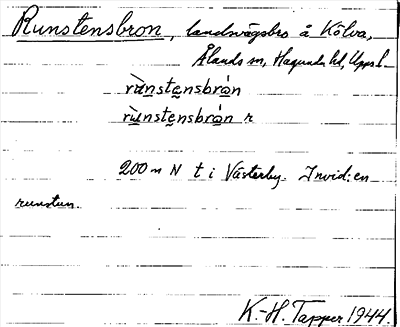 Runstensbron, landsvägsbro å Kölva,
Ålands sn, Hagunda hd, Upps. l.
rùnstensbrón
rùnstensbrón r
200 m N t i Västerby. Invid: en
runsten.
K.-H. Tapper 1944.